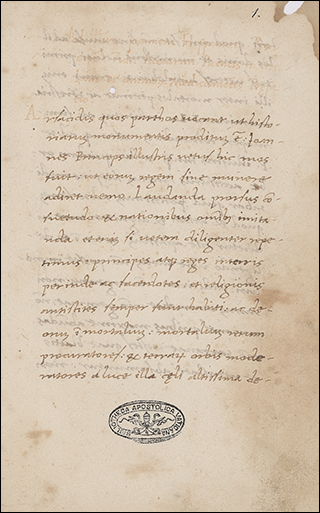 1.
Arsacidis quos parthos vocant ut histo-
riarum monumentis proditum ē: Joan-
nes princeps illustris vetus hic mos
fuit: ut eorum regem sine munere
adiret nemo. Laudanda prorsus cō
suetudo & nationibus omībus imita
nda: etenim si vetera diligenter repe
timus: principes atque reges in terris
perinde ac sacerdotes: et religionis
antistites semper sunt habiti: ac de-
orum mortalium: mortalium rerum
procuratores: & terrarum orbis mode-
ratores a luce illa cęli altissima de-
BIBLIOTHECA APOSTOLICA VATICANA